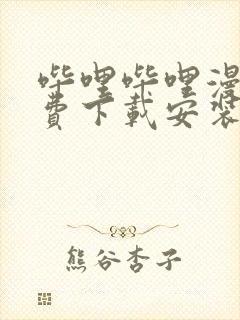 哔哩哔哩漫
费下载安装
熊谷杏子